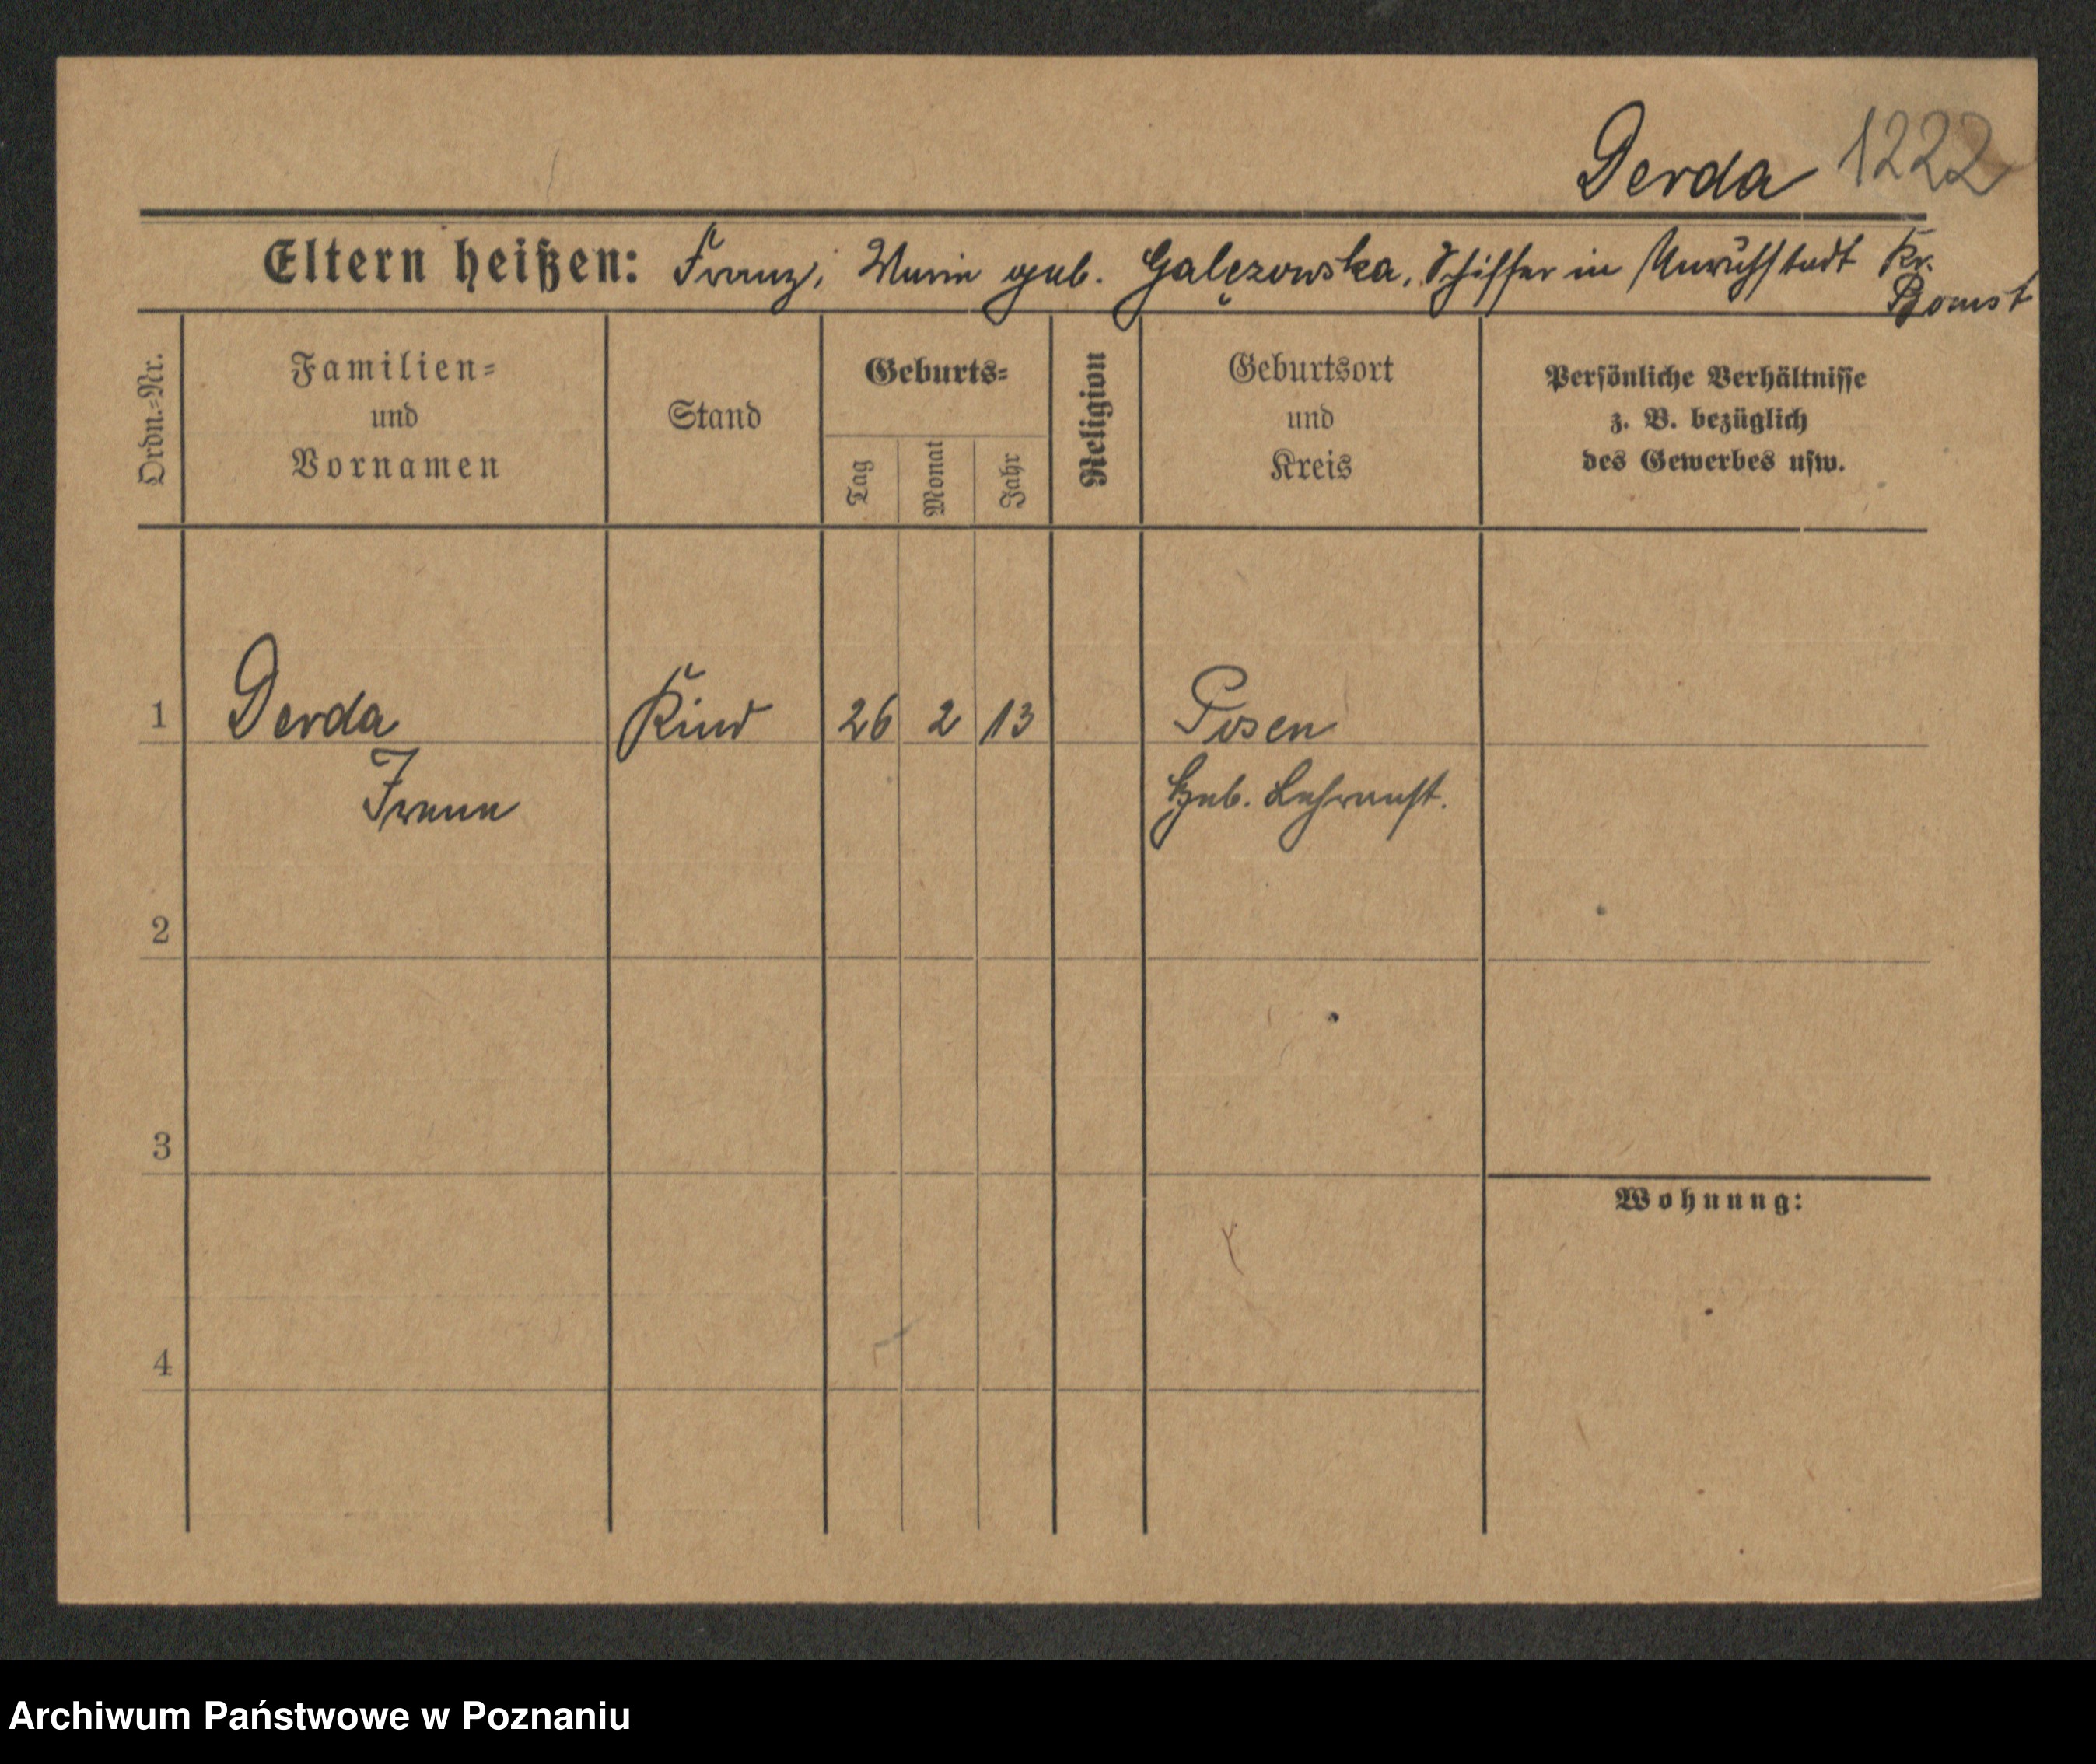 Derda 1222
Eltern heißen: Franz, Marie geb. Galęzowska, Schiffer in Unruhstadt Kr.
Bomst
Ordn.-Nr.
Familien-
und
Vornamen
Stand
Geburts-
Tag
Monat
Jahr
Religion
Geburtsort
und
Kreis
Persönliche Verhältnisse
z. B. bezüglich
des Gewerbes usw.
1 Derda Kind 26 2 13 Posen
Irene Heb. Lehranst.
2
3
Wohnung:
4
Archiwum Państwowe w Poznaniu